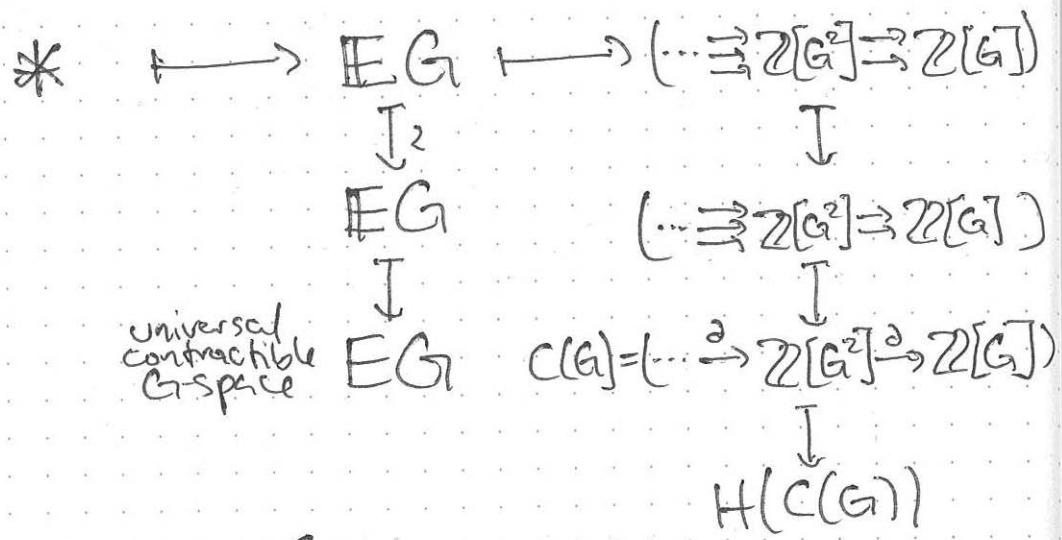 * ⟼ 𝔼G ⟼ (⋯ ⇛ ℤ[G²] ⇉ ℤ[G])
↧ 2 ↧
𝔼G (⋯ ⇛ ℤ[G²] ⇉ ℤ[G])
↧ ↧
universal
contractible
G-space
EG C(G)=(⋯ →∂ ℤ[G²] →∂ ℤ[G])
↧
H(C(G))